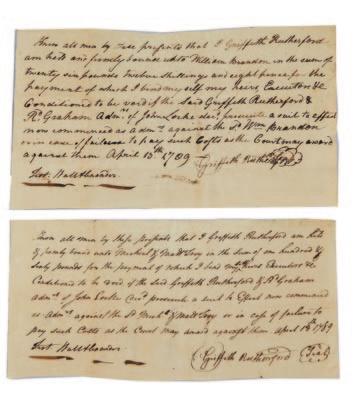 Know all men by These presents that I Griffeth Rutherford
am held and firmly bound unto William Brandon in the sum of
twenty six pounds Twelve Shillings and eight pence for the
payment of which I bind my self my heirs, Executors &c
Conditioned to be void if the Said Griffeth Rutherford &
Rt. Graham Admr. of John Locke decd. prosecute a suit to effect
now commenced as admrs. against the Sd. Wm. Brandon
or in case of failure to pay such Costs as the Court may award
against them April 13th 1789
Griffeth Rutherford
Test.
Know all men by these presents that I Griffeth Rutherford am held
& firmly bound unto Michael & Troy in the Sum of one hundred &
Sixty pounds for the payment of which I bind my heirs Executors &c
Conditioned to be void if the Said Griffeth Rutherford & Rt. Graham
admrs. of John Locke decd. prosecute a suit to effect now commenced
as Admrs. against the Sd. & Troy or in case of failure to
pay such Costs as the Court may award against them April 13th 1789
Griffeth Rutherford (Seal)
Test.